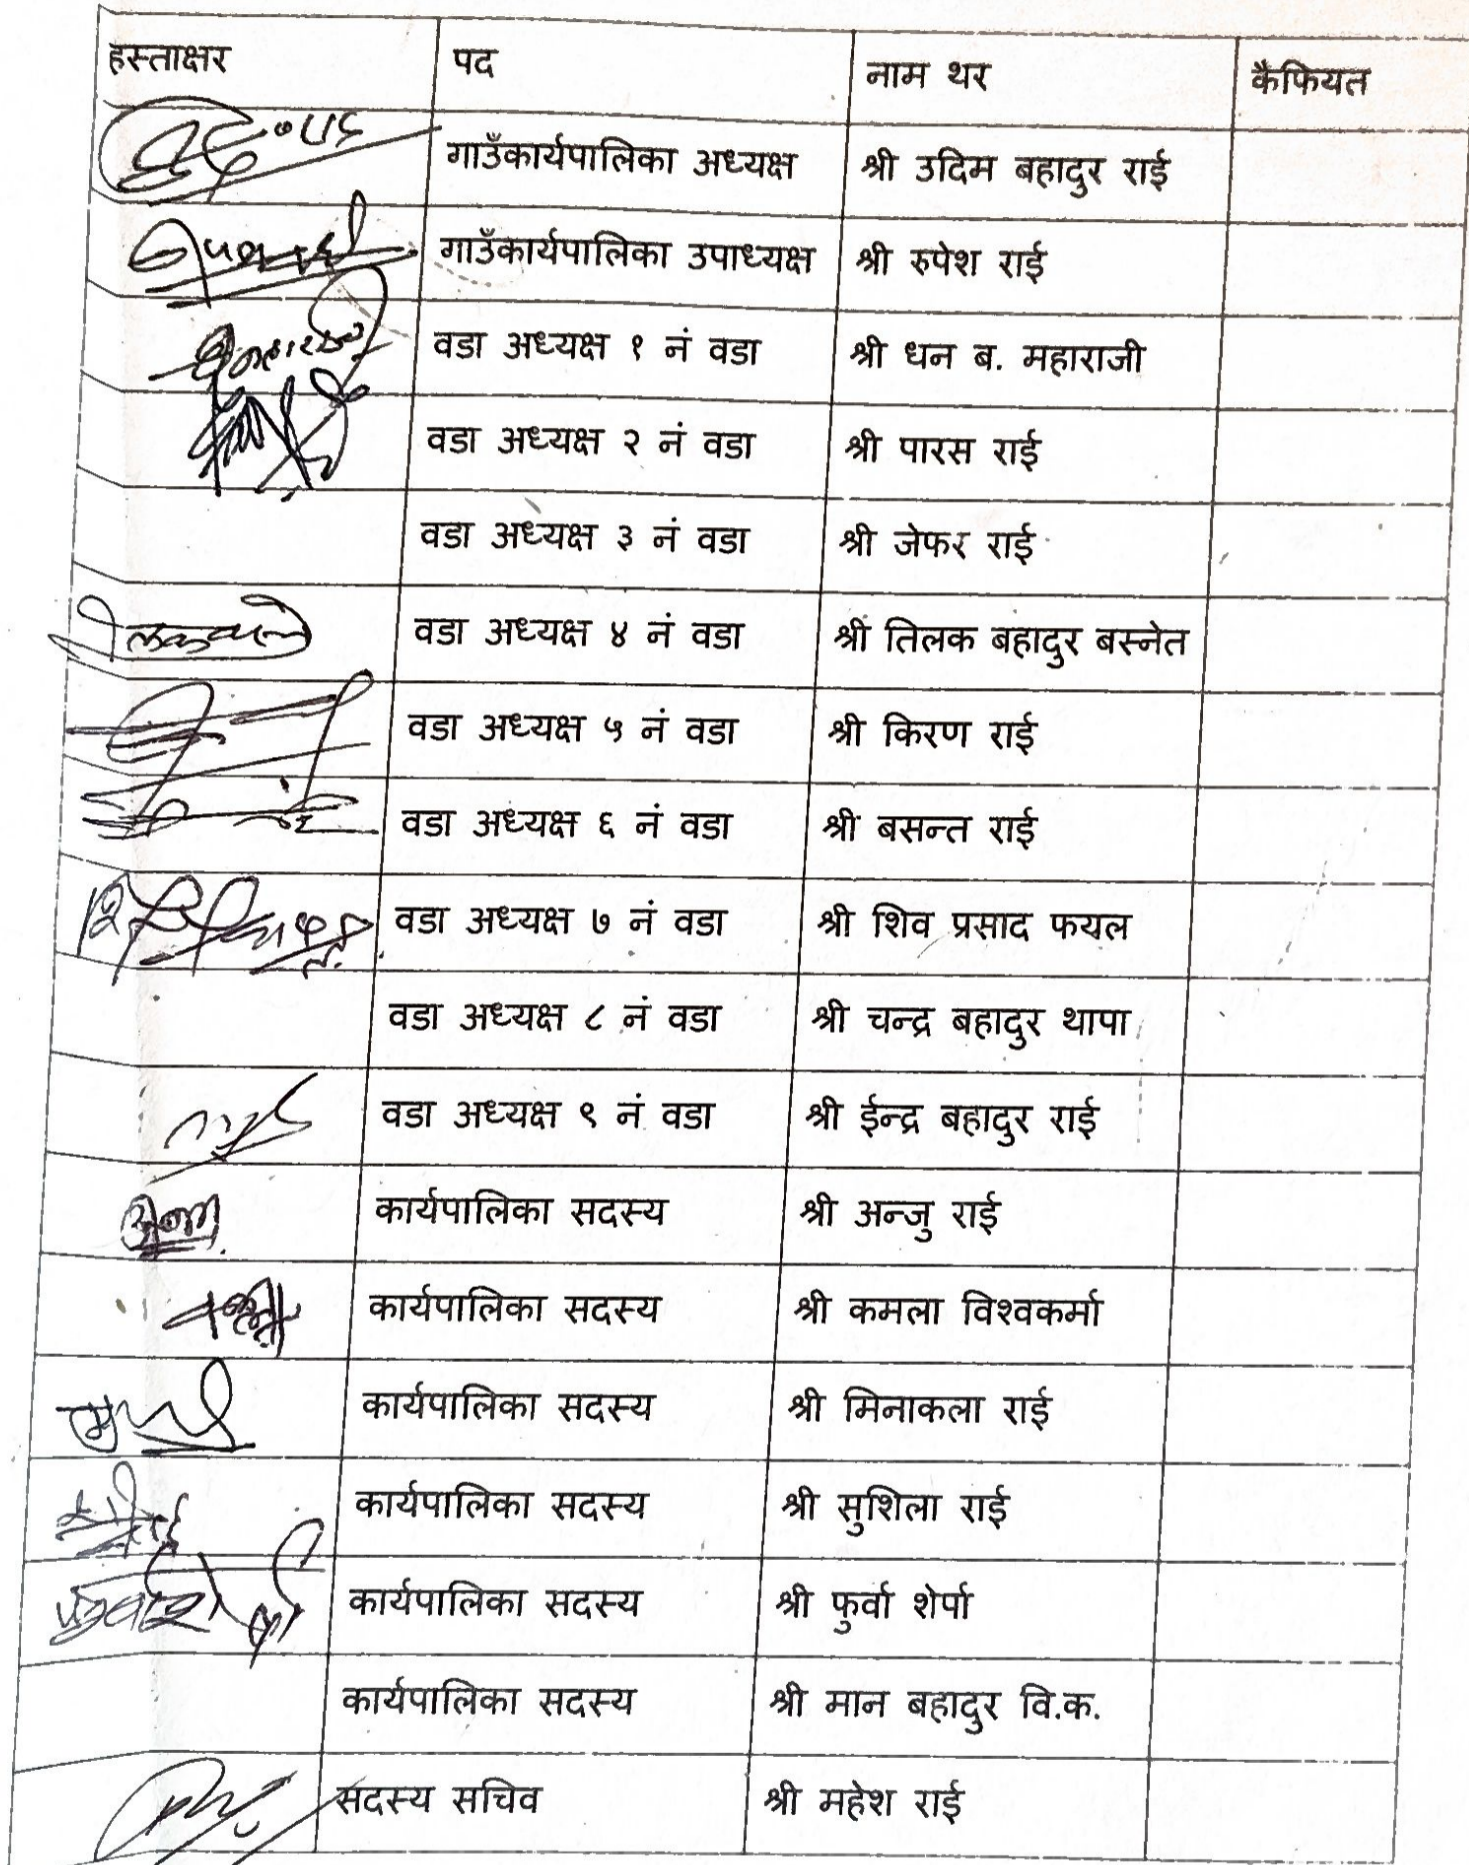 हस्ताक्षर पद नाम थर कैफियत
गाउँकार्यपालिका अध्यक्ष श्री उदिम बहादुर राई
गाउँकार्यपालिका उपाध्यक्ष श्री रुपेश राई
वडा अध्यक्ष १ नं वडा श्री धन ब. महाराजी
वडा अध्यक्ष २ नं वडा श्री पारस राई
वडा अध्यक्ष ३ नं वडा श्री जेफर राई
वडा अध्यक्ष ४ नं वडा श्री तिलक बहादुर बस्नेत
वडा अध्यक्ष ५ नं वडा श्री किरण राई
वडा अध्यक्ष ६ नं वडा श्री बसन्त राई
वडा अध्यक्ष ७ नं वडा श्री शिव प्रसाद फयल
वडा अध्यक्ष ८ नं वडा श्री चन्द्र बहादुर थापा
वडा अध्यक्ष ९ नं वडा श्री ईन्द्र बहादुर राई
कार्यपालिका सदस्य श्री अन्जु राई
कार्यपालिका सदस्य श्री कमला विश्वकर्मा
कार्यपालिका सदस्य श्री मिनाकला राई
कार्यपालिका सदस्य श्री सुशिला राई
कार्यपालिका सदस्य श्री फुर्वा शेर्पा
कार्यपालिका सदस्य श्री मान बहादुर वि.क.
सदस्य सचिव श्री महेश राई